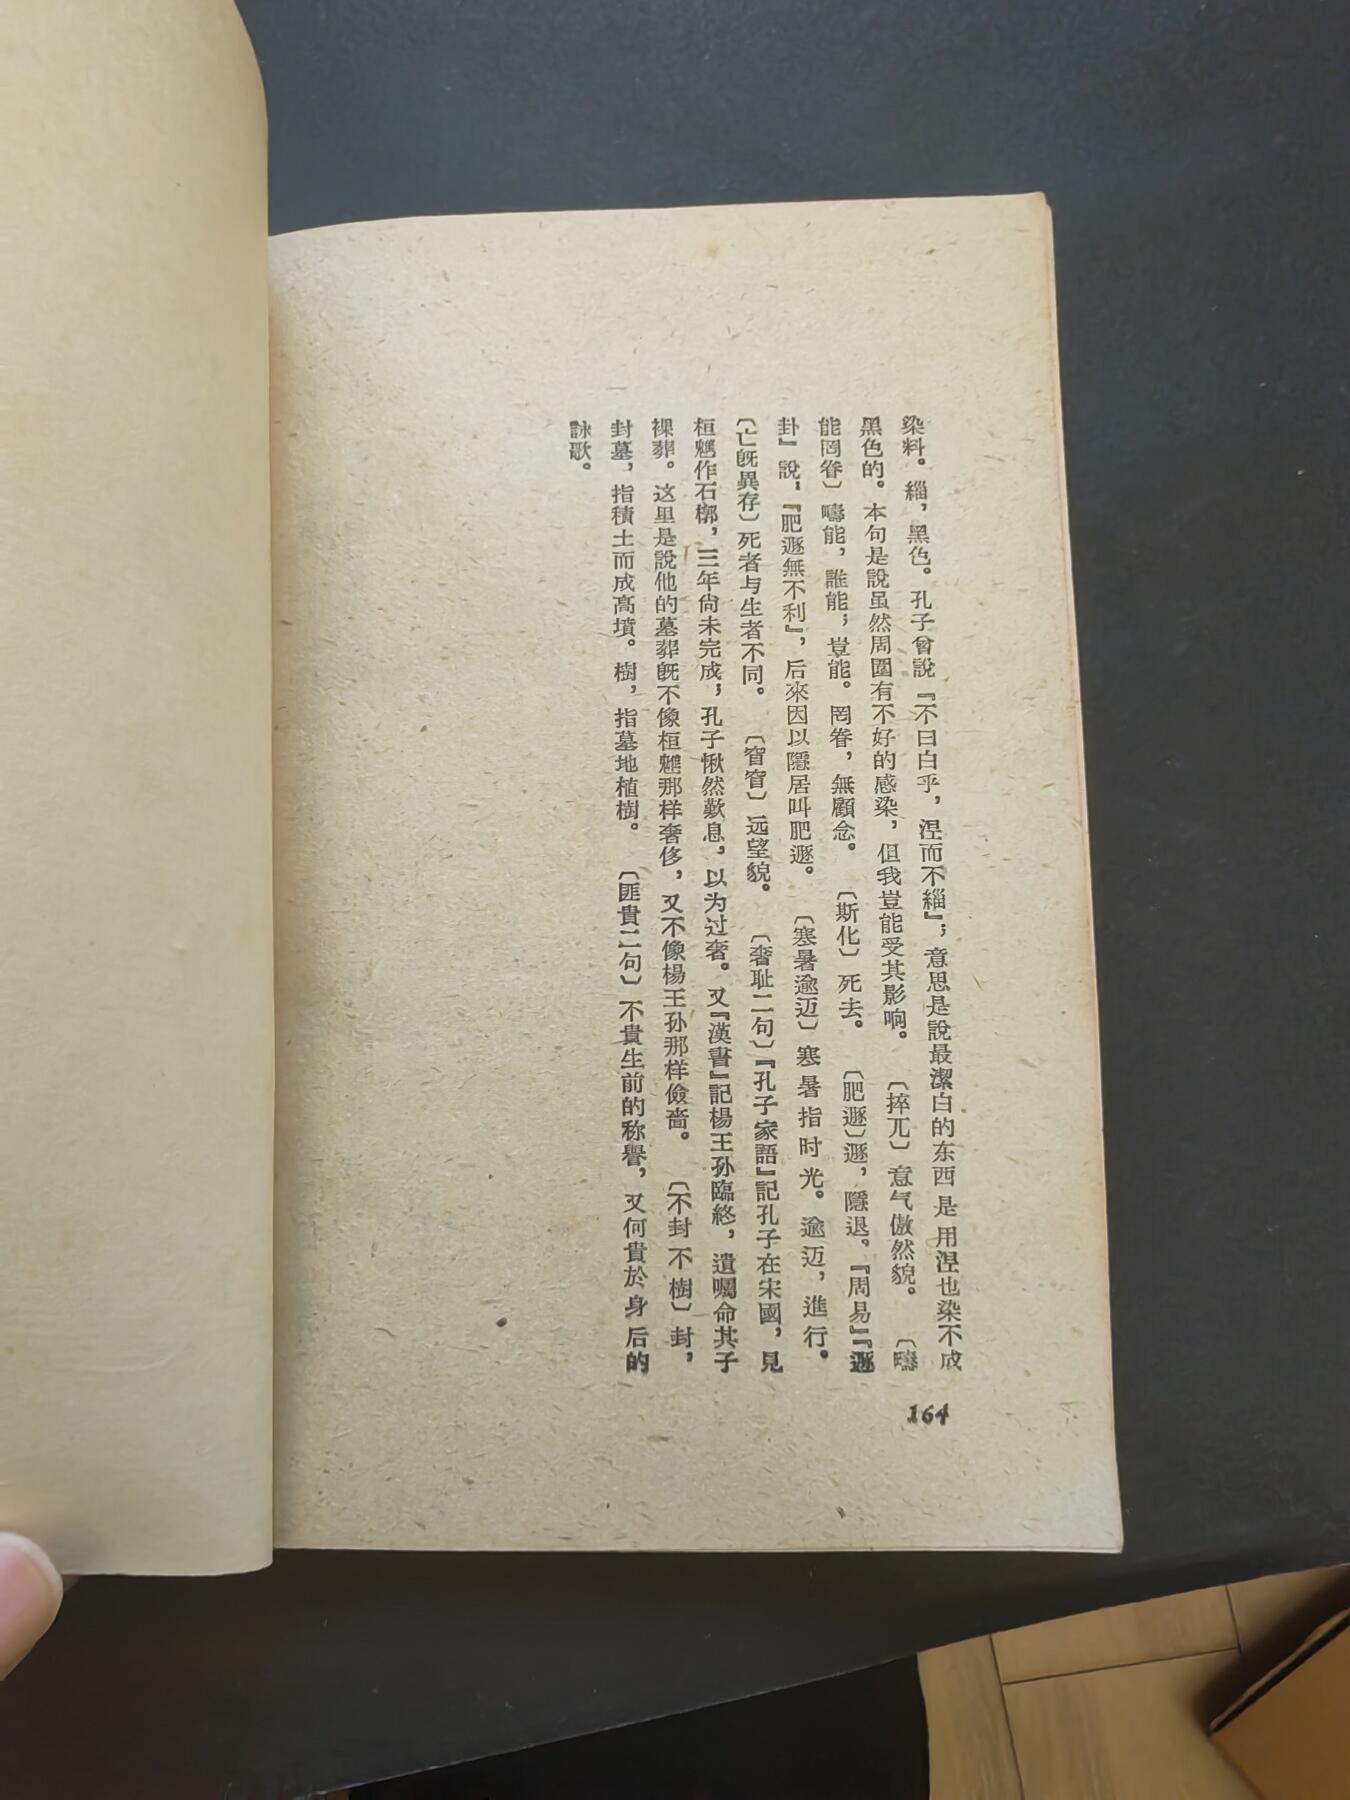 染料。緇，黑色。孔子曾說『不曰白乎，涅而不緇』；意思是說最潔白的东西是用涅也染不成
黑色的。本句是說虽然周圍有不好的感染，但我豈能受其影响。　〔捽兀〕意气傲然貌。　〔疇
能罔眷〕疇能，誰能；豈能。罔眷，無顧念。　〔斯化〕死去。　〔肥遯〕遯，隱退。『周易』『遯
卦』說，『肥遯無不利』，后來因以隱居叫肥遯。　〔寒暑逾迈〕寒暑指时光。逾迈，進行。
〔亡旣異存〕死者与生者不同。　〔窅窅〕远望貌。　〔奢耻二句〕『孔子家語』記孔子在宋國，見
桓魋作石槨，三年尙未完成；孔子愀然歎息，以为过奢。又『漢書』記楊王孙臨終，遺囑命其子
裸葬。这里是說他的墓葬旣不像桓魋那样奢侈，又不像楊王孙那样儉嗇。　〔不封不樹〕封，
封墓，指積土而成高墳。樹，指墓地植樹。　〔匪貴二句〕不貴生前的称譽，又何貴於身后的
詠歌。
164